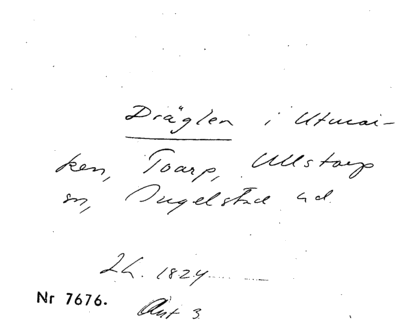 Dräglen i Utmar-
ken, Toarp, Ullstorp
sn, Ingelstad hd.
Lh. 1824
Nr 7676. Akt 3